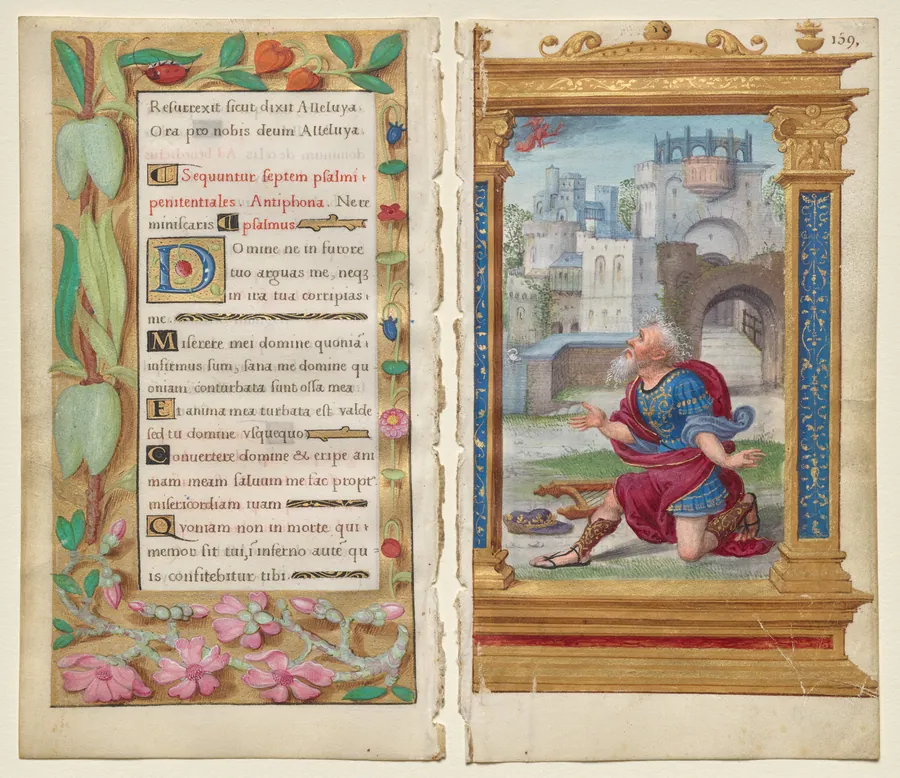 Resurrexit sicut dixit Alleluya.
Ora pro nobis deum Alleluya.
Sequuntur septem psalmi
penitentiales. Antiphona. Nere
miniscaris psalmus
Domine ne in furore
tuo arguas me, neqȝ
in ira tua corripias
me.
Miserere mei domine quoniā
infirmus sum, sana me domine qu
oniam conturbata sunt ossa mea
Et anima mea turbata est valde
sed tu domine vsquequo
Conuertere domine & eripe ani
mam meam saluum me fac propt
misericordiam tuam
Qvoniam non in morte qui
memor sit tui, ī inferno autē qu
is confitebitur tibi.
159.